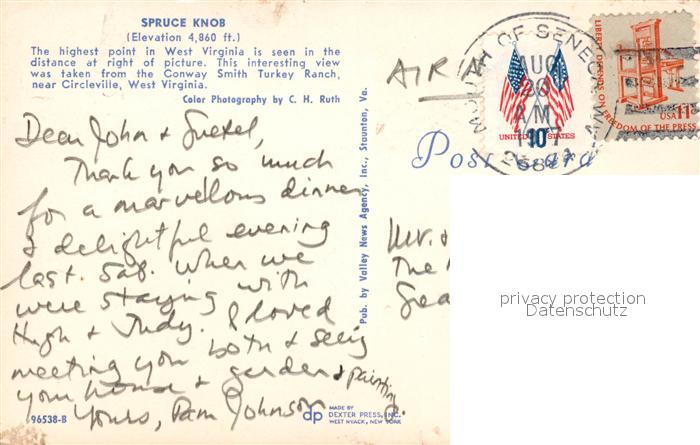 SPRUCE KNOB
(Elevation 4,860 ft.)
The highest point in West Virginia is seen in the
distance at right of picture. This interesting view
was taken from the Conway Smith Turkey Ranch,
near Circleville, West Virginia.
Color Photography by C. H. Ruth
Dear John &
Thank you so much
for a marvelous dinner
& delightful evening
last Sat. when we
were staying with
Hugh & Judy. I loved
meeting you both & seeing
your house & garden & painting
Yours, Pam Johnson
96538-B
dp
MADE BY
DEXTER PRESS, INC.
WEST NYACK, NEW YORK
Pub. by Valley News Agency, Inc., Staunton, Va.
AIR
MOUTH OF SENECA
AUG
20
AM
26884
UNITED 10c STATES
LIBERTY DEPENDS ON FREEDOM OF THE PRESS
USA 11c
Post Card
Mr. &
The
privacy protection
Datenschutz